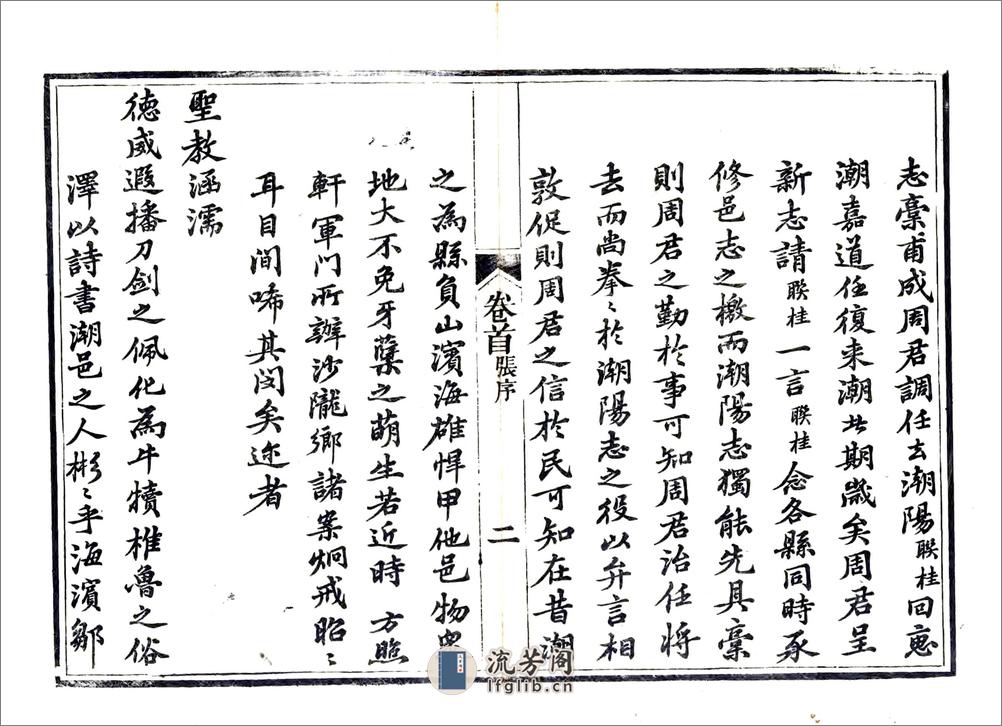 志稾甫成周君調任去潮陽聯桂回惠
潮嘉道任復來潮此期歲矣周君呈
新志請聯桂一言聯桂念各縣同時承
修邑志之檄而潮陽志獨能先具稾
則周君之勤於事可知周君治任將
去而尚拳〻於潮陽志之役以弁言相
敦促則周君之信於民可知在昔潮
卷首張序
二
之為縣負山濱海雄悍甲他邑物
地大不免牙櫱之萌生若近時方照
軒軍門所辦沙隴鄉諸案炯戒昭〻
耳目間唏其閔矣迩者
聖教涵濡
德威遐播刀劍之佩化為牛犢椎魯之俗
澤以詩書潮邑之人彬〻乎海濱鄒
流芳閣
lfglib.cn